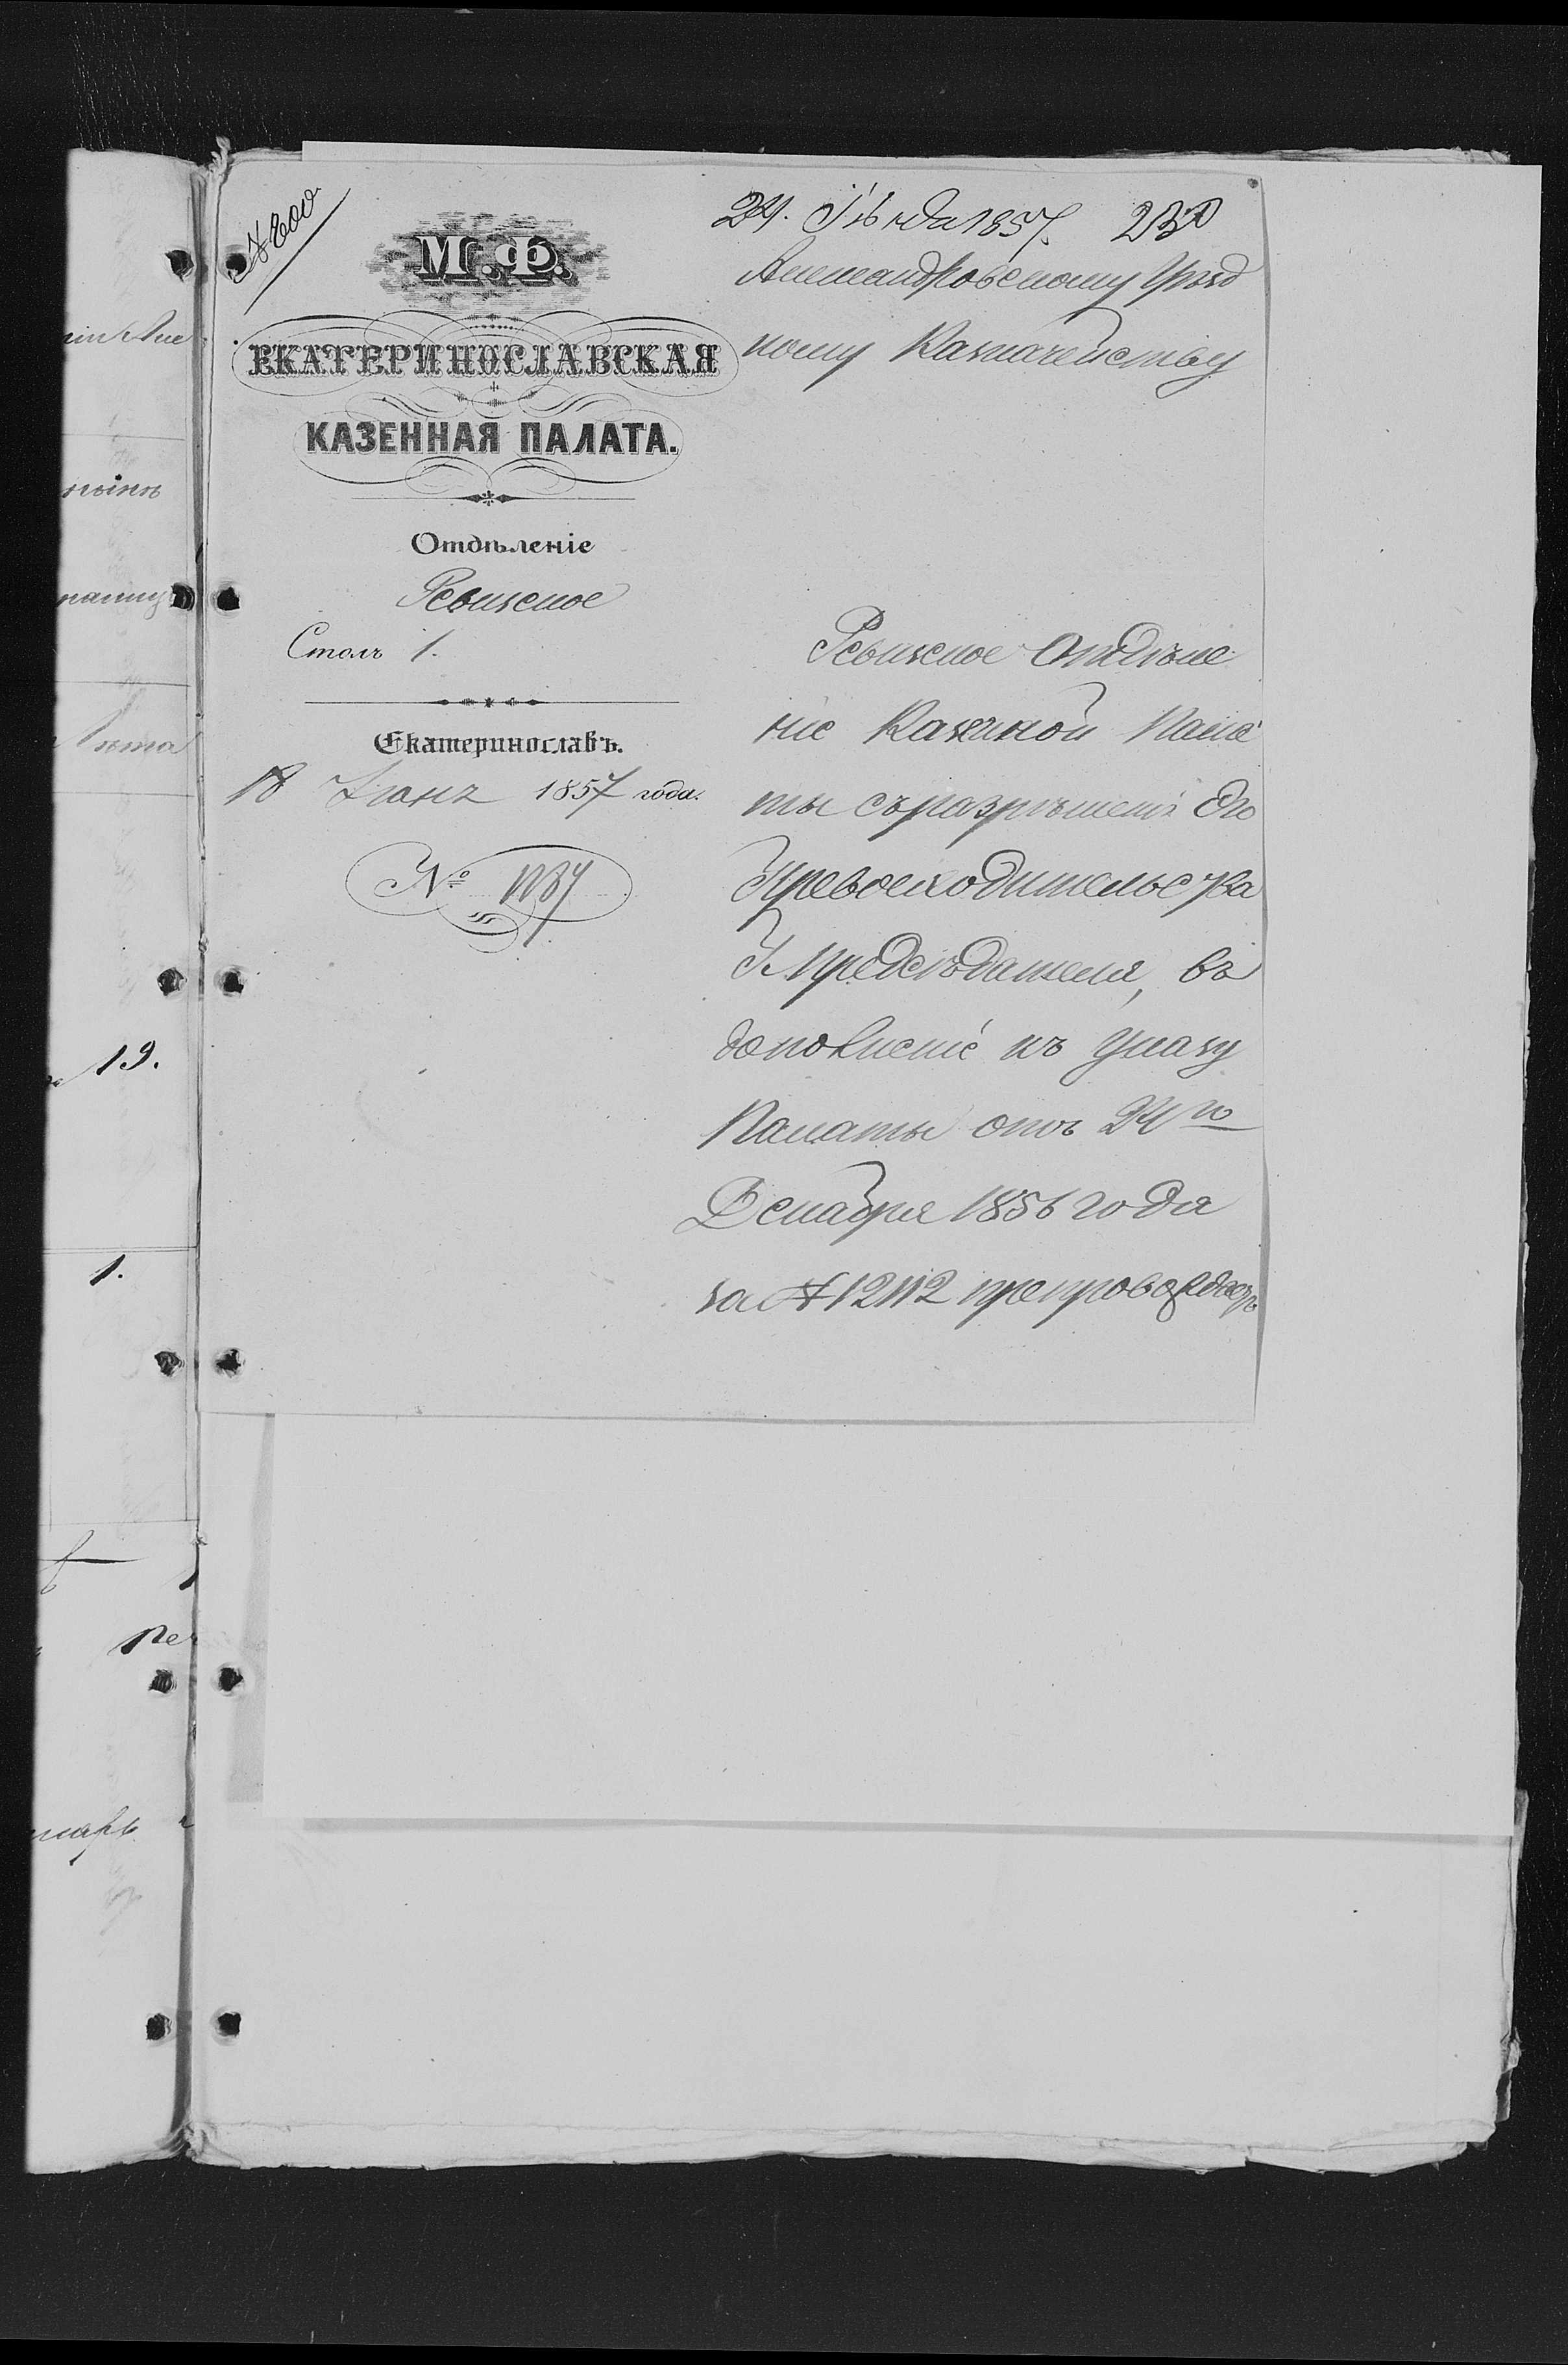 М.Ф.
ЕКАТЕРИНОСЛАВСКАЯ
КАЗЕННАЯ ПАЛАТА.
Отдѣленіе
Ревизское
Столъ 1.
Екатеринославъ.
18 1857 года.
№
1857 230
Александровскому Уѣзд
ному Казначейству
Ревизское Отдѣле
ніе Казенной Пала
ты съ разрѣшенія Его
Превосходительства
Г. Предсѣдателя, въ
дополненіе къ указу
Палаты отъ 24го
Декабря 1856 года
за № 12112 препровождаетъ
19.
1.